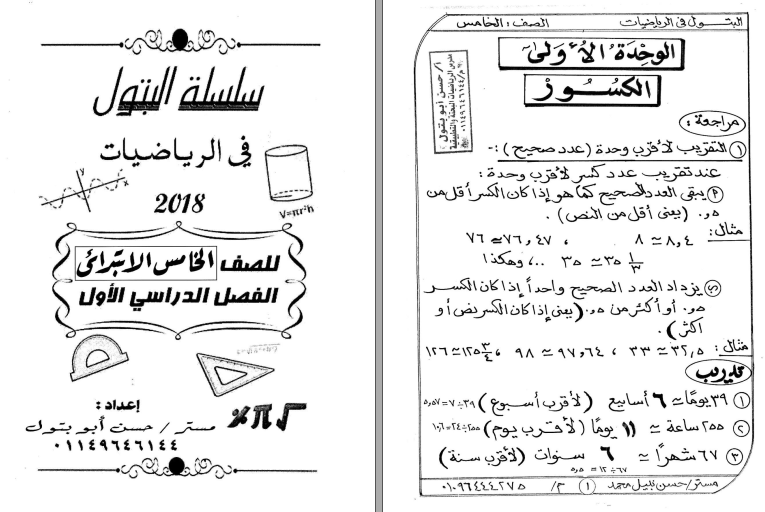 سلسلة البتول
في الرياضيات
y
x
V=πr²h
2018
للصف الخامس الابتدائى
الفصل الدراسي الأول
إعداد :
مستر / حسن أبو بتول
٠١١٤٩٦٤٦١٤٤
البتـول فى الرياضيات
الصف : الخامس
الوحدة الأولى
الكسور
أ/ حسن أبو بتول
مراجعة :
① التقريب لأقرب وحدة (عدد صحيح) :-
عند تقريب عدد كسر لأقرب وحدة :
يبقى العدد الصحيح كما هو إذا كان الكسر أقل من
٠,٥ (يعنى أقل من النص) .
مثال : ٨,٤ ≃ ٨ ، ٧٦,٤٧ ≃ ٧٦
٣٥ ١/٣ ≃ ٣٥ ،.. وهكذا
يزداد العدد الصحيح واحداً إذا كان الكسر
٠,٥ أو أكثر من ٠,٥ (يعنى إذا كان الكسر نص أو
أكثر) .
مثال : ٣٢,٥ ≃ ٣٣ ، ٩٧,٦٤ ≃ ٩٨ ، ١٢٥ ٣/٤ ≃ ١٢٦
تدريب
① ٣٩ يومًا ≃ ٦ أسابيع (لأقرب أسبوع) ٣٩÷٧=٥,٥٧
② ٢٥٥ ساعة ≃ ١١ يومًا (لأقرب يوم) ٢٥٥÷٢٤=١٠,٦
③ ٦٧ شهراً ≃ ٦ سنوات (لأقرب سنة)
٦٧÷١٢=٥,٥
مستر/حسن نبيل محمد
١
م/ ٠١٠٩٦٤٤٤٢٧٥